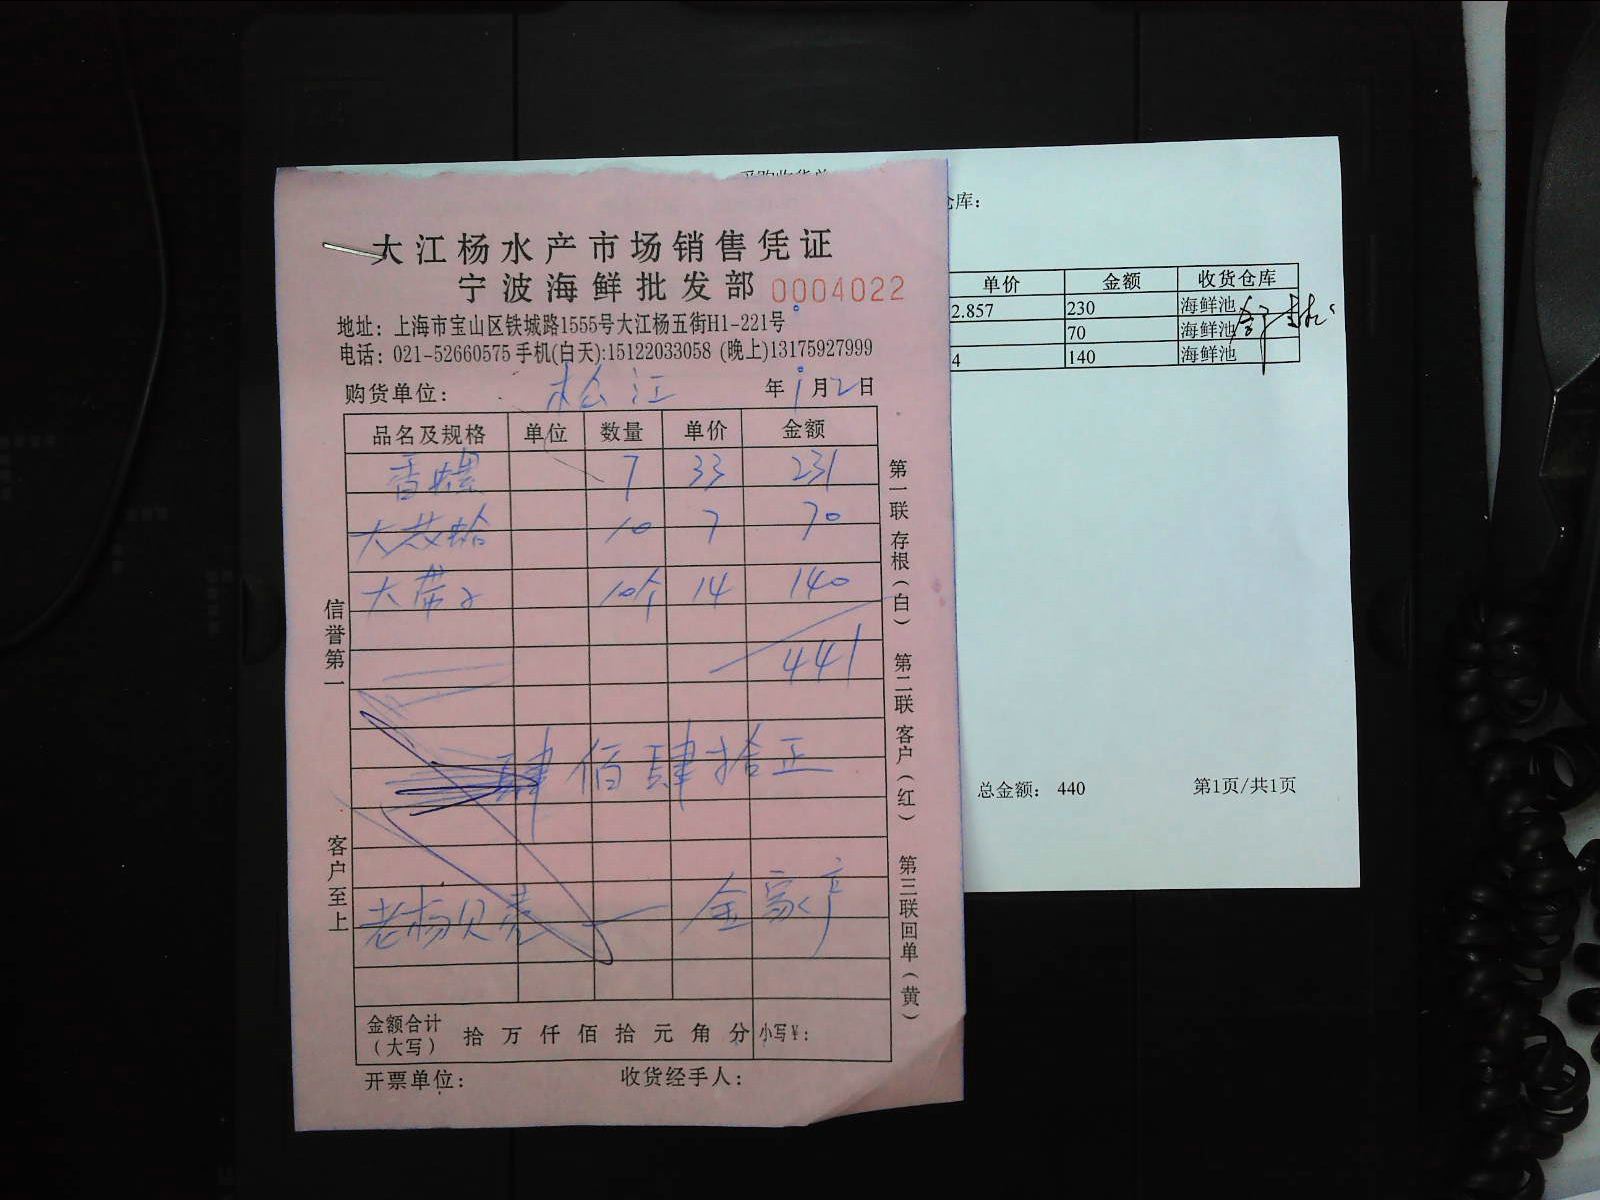 大江杨水产市场销售凭证
宁波海鲜批发部 0004022
地址：上海市宝山区铁城路1555号大江杨五街H1-221号
电话：021-52660575 手机(白天):15122033058 (晚上)13175927999
购货单位： 松江 年 9月2日
品名及规格 单位 数量 单价 金额
香螺 7 33 231
大花蛤 10 7 70
大带子 10个 14 140
441
肆佰肆拾正
老杨贝壳 — 金家产
金额合计（大写） 拾 万 仟 佰 拾 元 角 分 小写￥：
开票单位： 收货经手人：
信誉第一
客户至上
第一联 存根（白） 第二联 客户（红） 第三联 回单（黄）
采购收货单
仓库：
单价 金额 收货仓库
2.857 230 海鲜池
70 海鲜池
4 140 海鲜池
总金额： 440 第1页/共1页